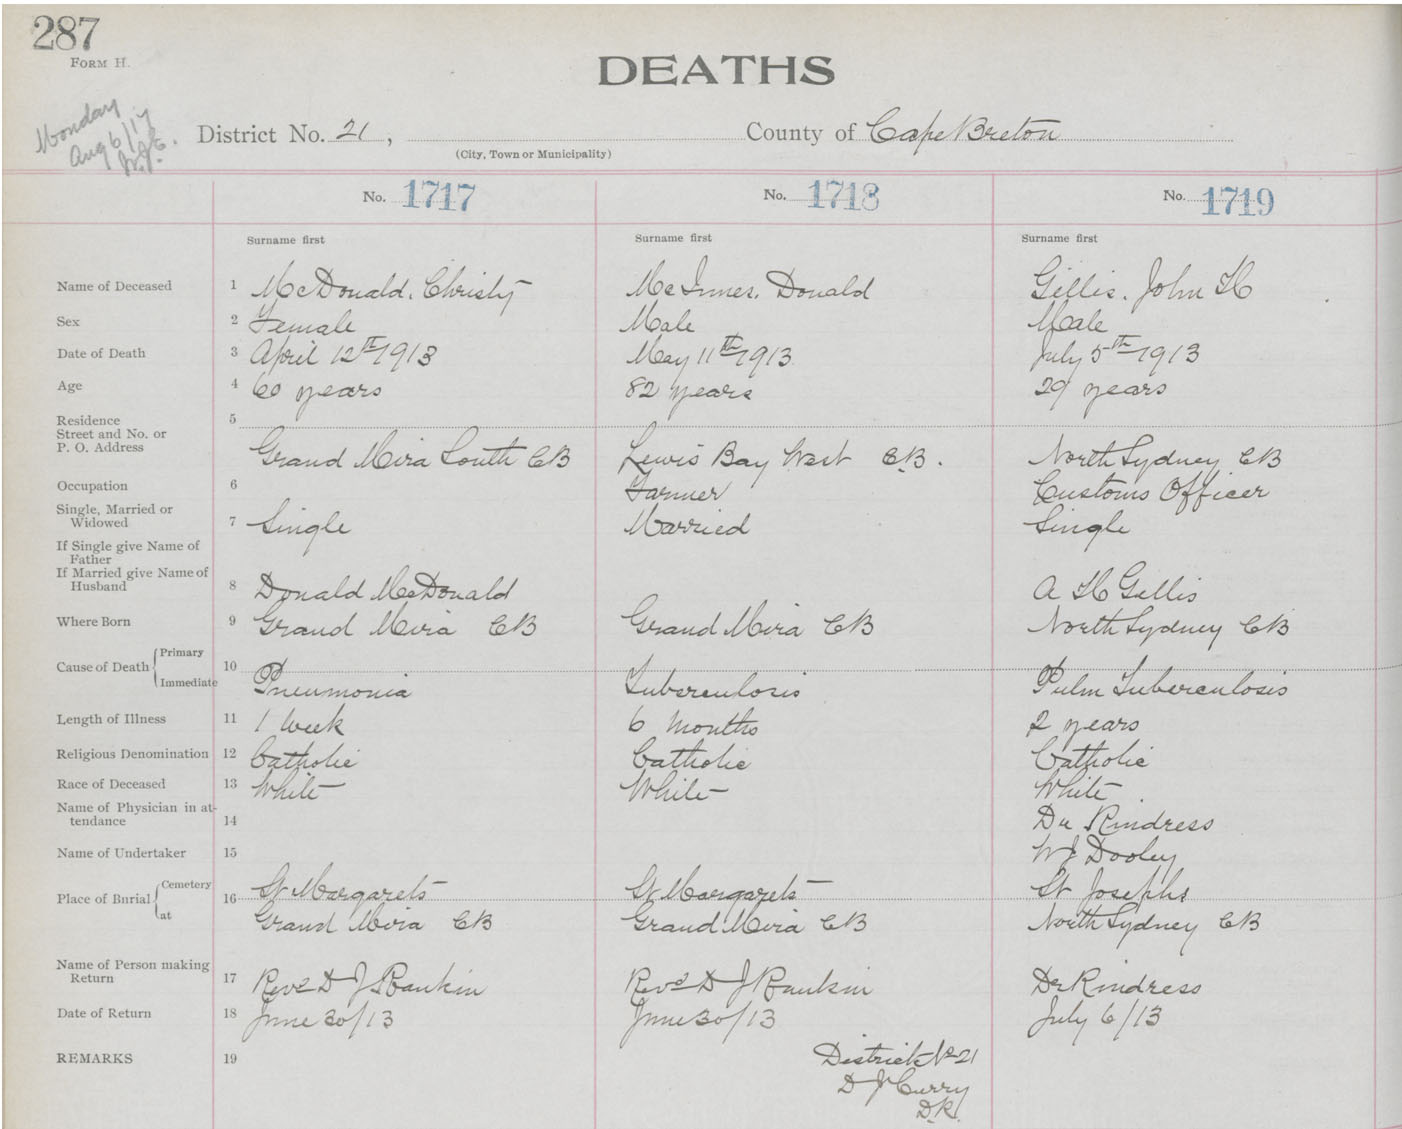 287
FORM H.
DEATHS
Monday
Aug 6/17
District No. 21, County of Cape Breton
(City, Town or Municipality)
No. 1717 No. 1718 No. 1719
Surname first Surname first Surname first
Name of Deceased 1 McDonald, Christy McInnes, Donald Gillis, John H
Sex 2 Female Male Male
Date of Death 3 April 12th 1913 May 11th 1913 July 5th 1913
Age 4 60 years 82 years 29 years
Residence 5
Street and No. or
P. O. Address Grand Mira South CB Lewis Bay West C.B. North Sydney CB
Occupation 6 Farmer Customs Officer
Single, Married or
Widowed 7 Single Married Single
If Single give Name of
Father
If Married give Name of
Husband 8 Donald McDonald A H Gillis
Where Born 9 Grand Mira CB Grand Mira CB North Sydney CB
Cause of Death { Primary 10
Immediate Pneumonia Tuberculosis Pulm Tuberculosis
Length of Illness 11 1 Week 6 Months 2 years
Religious Denomination 12 Catholic Catholic Catholic
Race of Deceased 13 White White White
Name of Physician in at-
tendance 14 Dr Rindress
Name of Undertaker 15 WJ Dooley
Place of Burial { Cemetery 16 St Margarets St Margarets St Josephs
at Grand Mira CB Grand Mira CB North Sydney CB
Name of Person making
Return 17 Revd D J Rankin Revd D J Rankin Dr Rindress
Date of Return 18 June 30/13 June 30/13 July 6/13
REMARKS 19 District No 21
D J Curry
D.R.